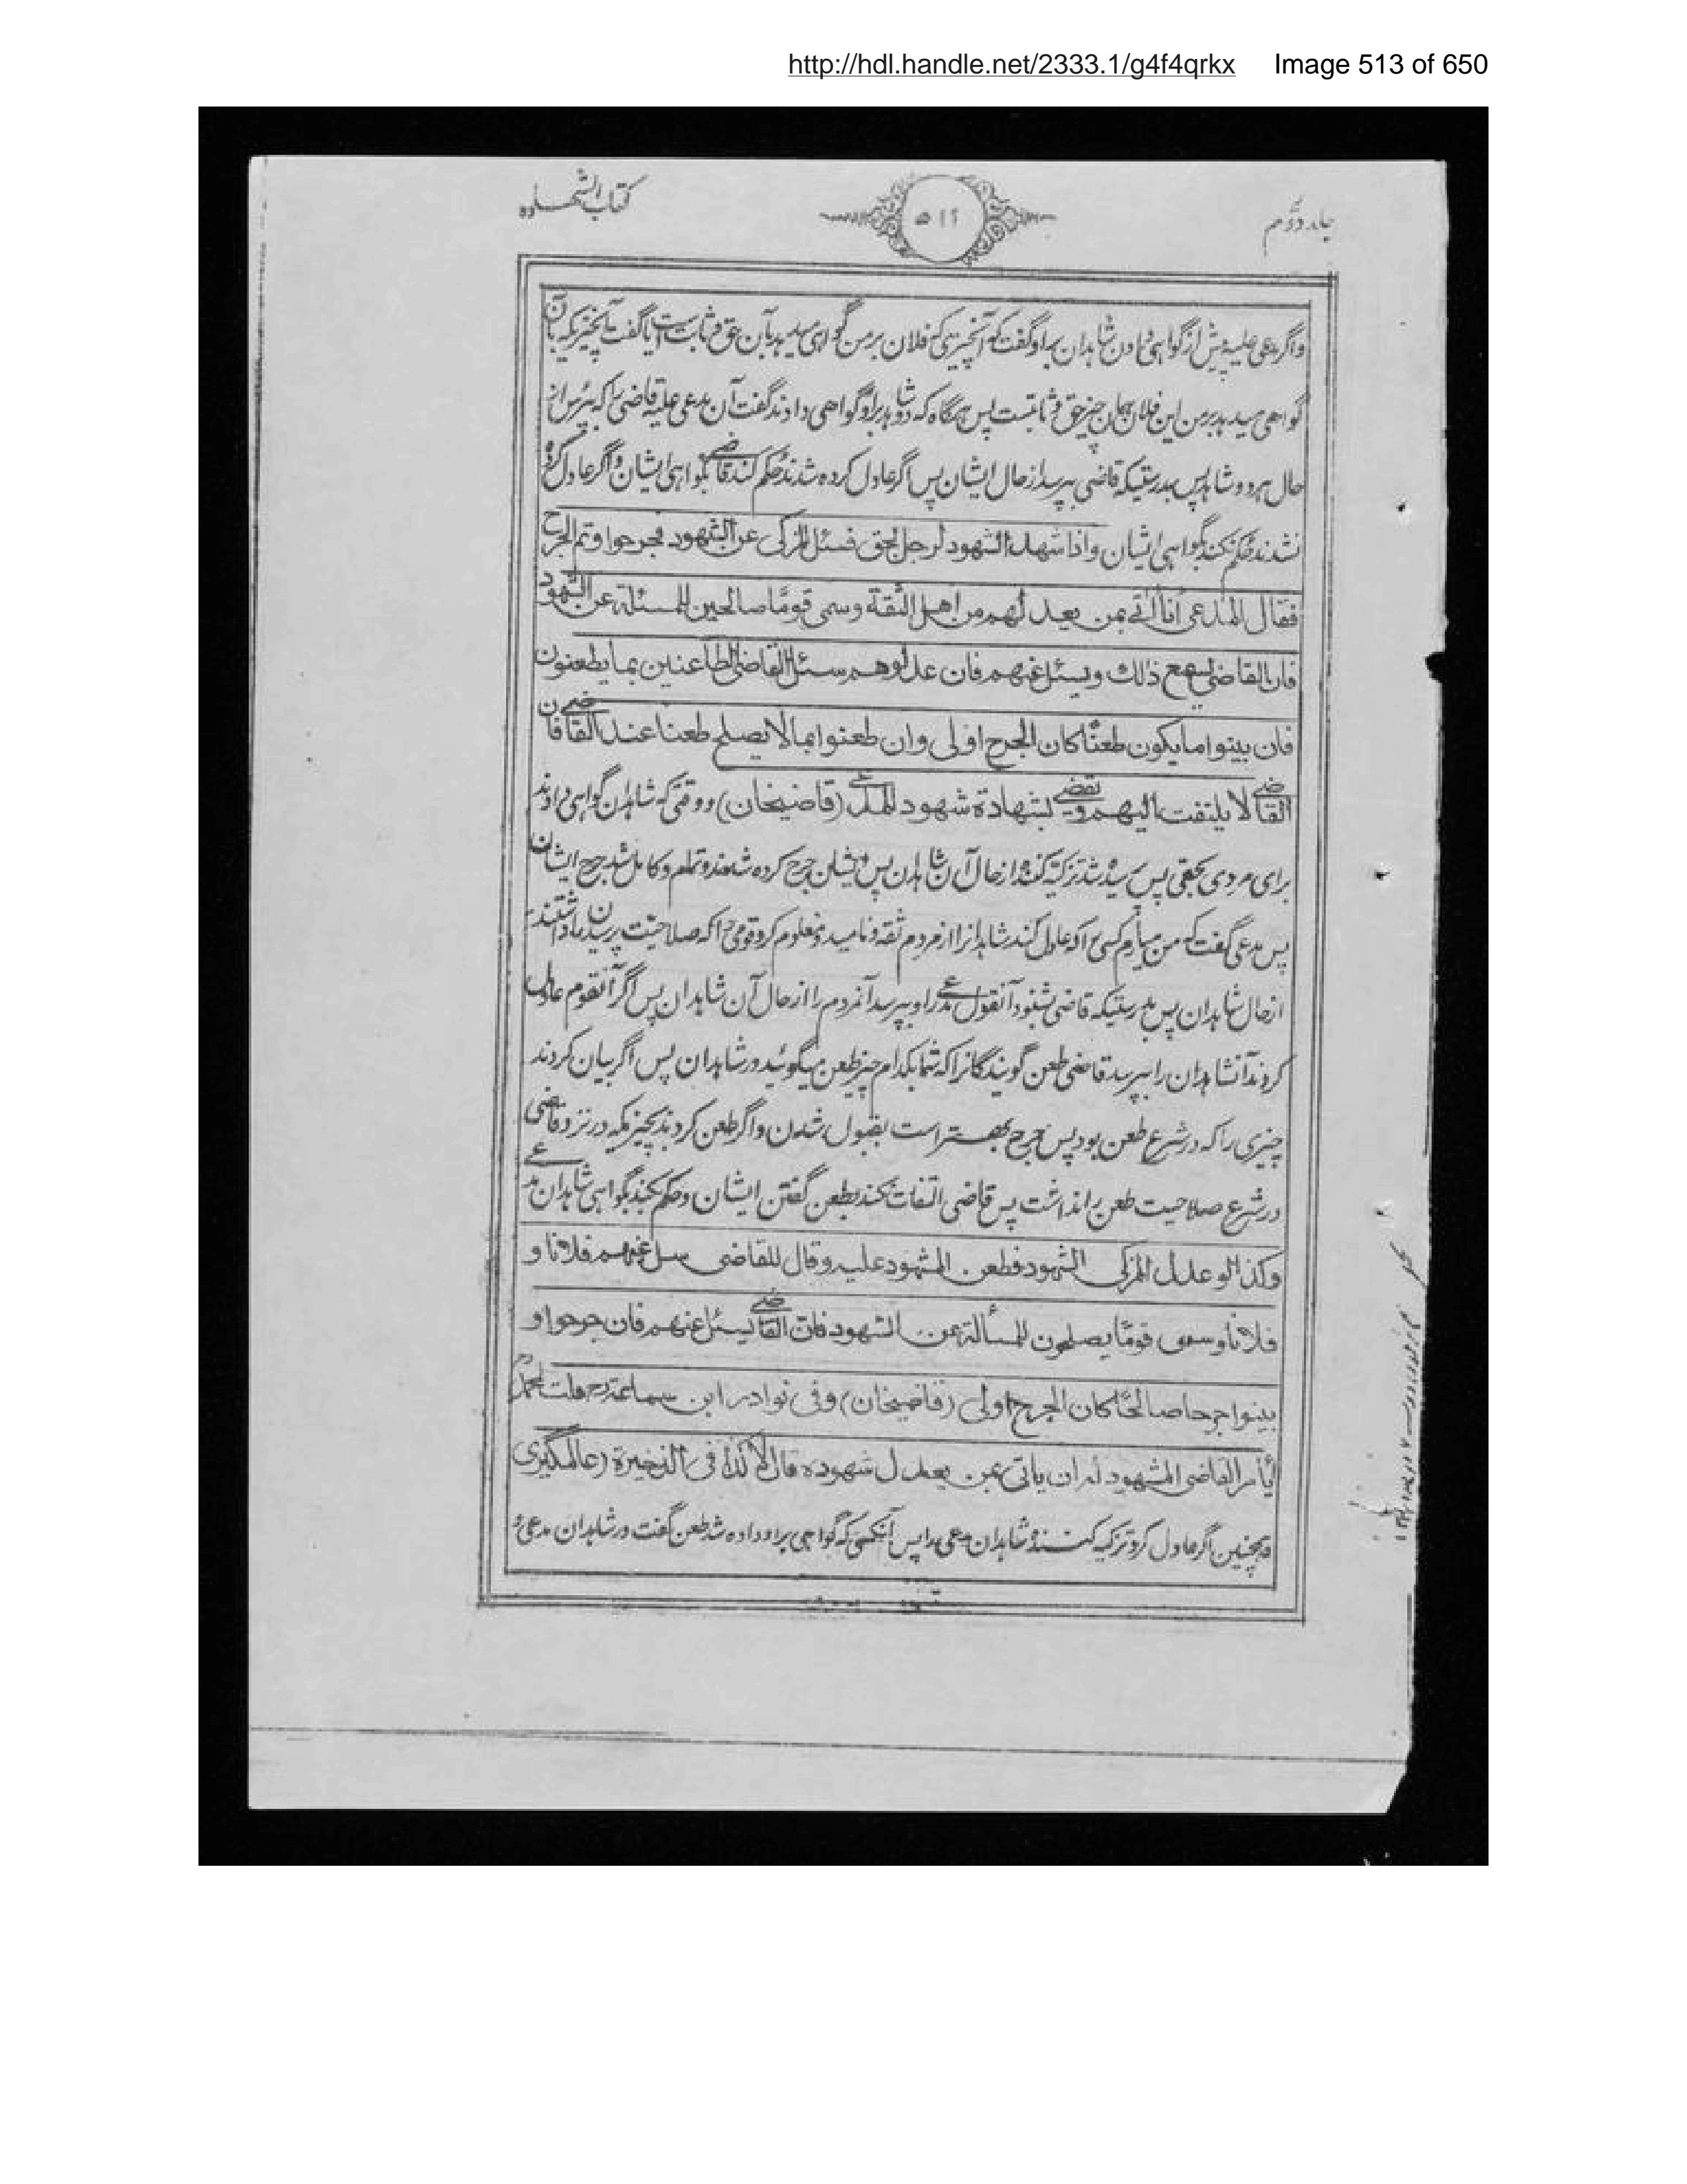 http://hdl.handle.net/2333.1/g4f4qrkx Image 513 of 650
جلد دوم
۵۱۲
کتاب الشهاده
واگر مدعی علیه پیش از گواهی دادن شاهدان براو گفت که آنچیزی که فلان بر من گواهی میدهد بآن حق و ثابت است آیا گفت آنچیزیکه بآن
گواهی میدهد بر من این فلان همان چیز حق و ثابتست پس هرگاه که دو شاهد براو گواهی دادند گفت آن مدعی علیه قاضی را که بپرس از
حال هردو شاهد پس بدرستیکه قاضی بپرسد از حال ایشان پس اگر عادل کرده شدند حکم کند قاضی بگواهی ایشان واگر عادل کرده
نشدند حکم نکند بگواهی ایشان واذا شهد الشهود لرجل بحق فسئل المزکی عن الشهود فجرحوا وتم الجرح
فقال المدعی انا اٰتی بمن یعدلهم من اهل الثقة وسمی قومًا صالحین للمسئلة عن الشهود
فان القاضی یسمع ذالك ویسئل عنهم فان عدلوهم سئل القاضی الطاعنین بما یطعنون
فان بینوا ما یکون طعنًا کان الجرح اولی وان طعنوا بما لا یصلح طعنا عند القاضی فان
القاضی لا یلتفت الیهم ویقضی بشهادة شهود المدعی (قاضیخان) ووقتی که شاهدان گواهی دادند
برای مردی بحقی پس پرسیده شد تزکیه کننده از حال آن شاهدان پس ایشان جرح کرده شدند و تمام و کامل شد جرح ایشان
پس مدعی گفت که من میآرم کسی را که عادل کند شاهدانرا از مردم ثقه و نامید و معلوم کرد قومی را که صلاحیت پرسیدن را داشتند
از حال شاهدان پس بدرستیکه قاضی بشنود آنقول مدعی را و بپرسد آنمردم را از حال آن شاهدان پس اگر آنقوم عادل
کردند آنشاهدان را بپرسد قاضی طعن گویندگانرا که شما بکدام چیز طعن میگوئید در شاهدان پس اگر بیان کردند
چیزی را که در شرع طعن بود پس جرح بهتر است بقبول شدن واگر طعن کردند بچیزیکه در نزد قاضی
در شرع صلاحیت طعن را نداشت پس قاضی التفات نکند بطعن گفتن ایشان و حکم بکند بگواهی شاهدان مدعی
وکذا لو عدل المزکی الشهود فطعن المشهود علیه وقال للقاضی سل عنهم فلانا و
فلانا وسمی قومًا یصلحون للمسألة عن الشهود فان القاضی یسئل عنهم فان جرحوا و
بینوا جرحا صالحًا کان الجرح اولی (قاضیخان) وفی نوادر ابن سماعة رح قلت لمحمد رح
أیأمر القاضی المشهود له ان یاتی بمن یعدل شهوده قال لا کذا فی الذخیرة (عالمگیری
وهمچنین اگر عادل کرد تزکیه کننده شاهدان مدعی را پس آنکسی که گواهی براو داده شد طعن گفت در شاهدان مدعی و